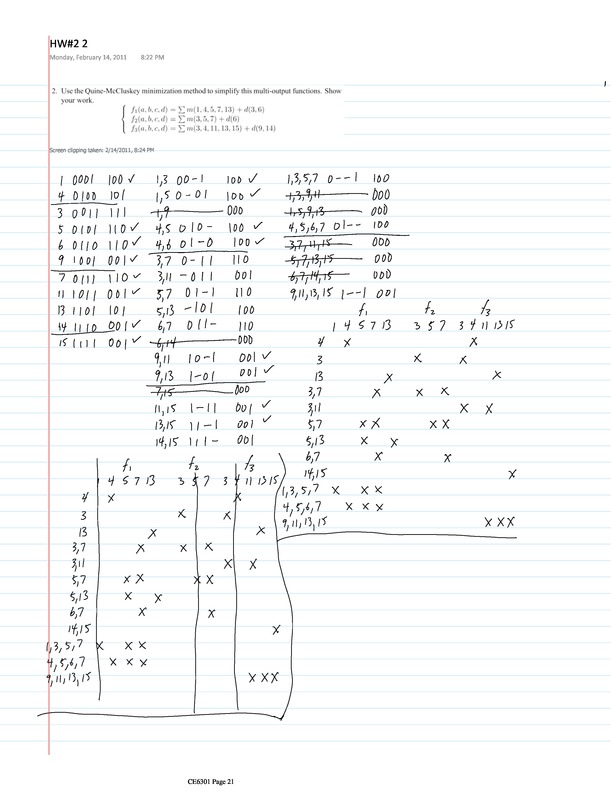 HW#2 2
Monday, February 14, 2011 8:22 PM
2. Use the Quine-McCluskey minimization method to simplify this multi-output functions. Show
your work.
f₁(a, b, c, d) = ∑ m(1, 4, 5, 7, 13) + d(3, 6)
f₂(a, b, c, d) = ∑ m(3, 5, 7) + d(6)
f₃(a, b, c, d) = ∑ m(3, 4, 11, 13, 15) + d(9, 14)
Screen clipping taken: 2/14/2011, 8:24 PM
1 0001 100 ✓
4 0100 101
3 0011 111
5 0101 110 ✓
6 0110 110 ✓
9 1001 001 ✓
7 0111 110 ✓
11 1011 001 ✓
13 1101 101
14 1110 001 ✓
15 1111 001 ✓
1,3 00-1 100 ✓
1,5 0-01 100 ✓
1,9 000
4,5 010- 100 ✓
4,6 01-0 100 ✓
3,7 0-11 110
3,11 -011 001
5,7 01-1 110
5,13 -101 100
6,7 011- 110
6,14 000
9,11 10-1 001 ✓
9,13 1-01 001 ✓
7,15 000
11,15 1-11 001 ✓
13,15 11-1 001 ✓
14,15 111- 001
1,3,5,7 0--1 100
1,3,9,11 000
1,5,9,13 000
4,5,6,7 01-- 100
3,7,11,15 000
5,7,13,15 000
6,7,14,15 000
9,11,13,15 1--1 001
f₁ f₂ f₃
1 4 5 7 13 3 5 7 3 4 11 13 15
4 x x
3 x x
13 x x
3,7 x x x
3,11 x x
5,7 x x x x
5,13 x x
6,7 x x
14,15 x
1,3,5,7 x x x
4,5,6,7 x x x
9,11,13,15 x x x
f₁ f₂ f₃
4 5 7 13 3 5 7 3 4 11 13 15
4 x x
3 x x
13 x x
3,7 x x x
3,11 x x
5,7 x x x x
5,13 x x
6,7 x x
14,15 x
1,3,5,7 x x x
4,5,6,7 x x x
9,11,13,15 x x x
CE6301 Page 21